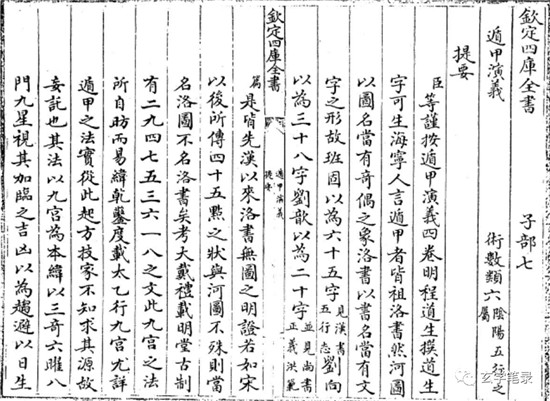 欽定四庫全書　子部七
遁甲演義　術數類六陰陽五行之屬
提要
臣等謹按遁甲演義四卷明程道生撰道生
字可生海寧人言遁甲者皆祖洛書然河圖
以圖名當有奇偶之象洛書以書名當有文
字之形故班固以為六十五字見漢書五行志劉向
以為三十八字劉歆以為二十字並見尚書正義洪範
欽定四庫全書　遁甲演義提要
篇是皆先漢以來洛書無圖之明證若如宋
以後所傳四十五點之狀與河圖不殊則當
名洛圖不名洛書矣考大戴禮載明堂古制
有二九四七五三六一八之文此九宮之法
所自昉而易緯乾鑿度載太乙行九宮尤詳
遁甲之法實從此起方技家不知求其源故
妄託也其法以九宮為本緯以三奇六曜八
門九星視其加臨之吉凶以為趨避以日生
玄学笔录